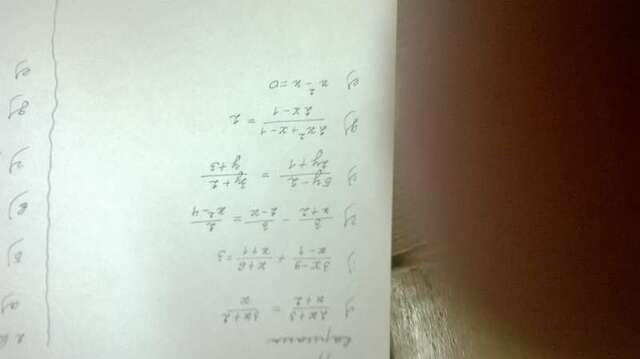 Вариант
(2x+3)/(x+2) = (3x+2)/x
(3x-9)/(x-1) + (x+6)/(x+1) = 3
3/(x+2) - 3/(2-x) = 2/(x²-4)
(5y-2)/(2y+1) = (3y+2)/(y+3)
д) (2x²+x-1)/(2x-1) = 2
е) x²-x=0
а)
б)
в)
г)
д)
е)